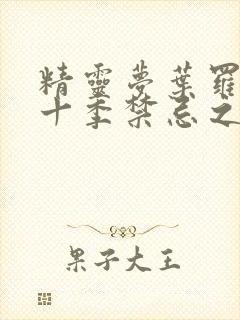 精靈夢葉羅
十季禁忌之
果子大王